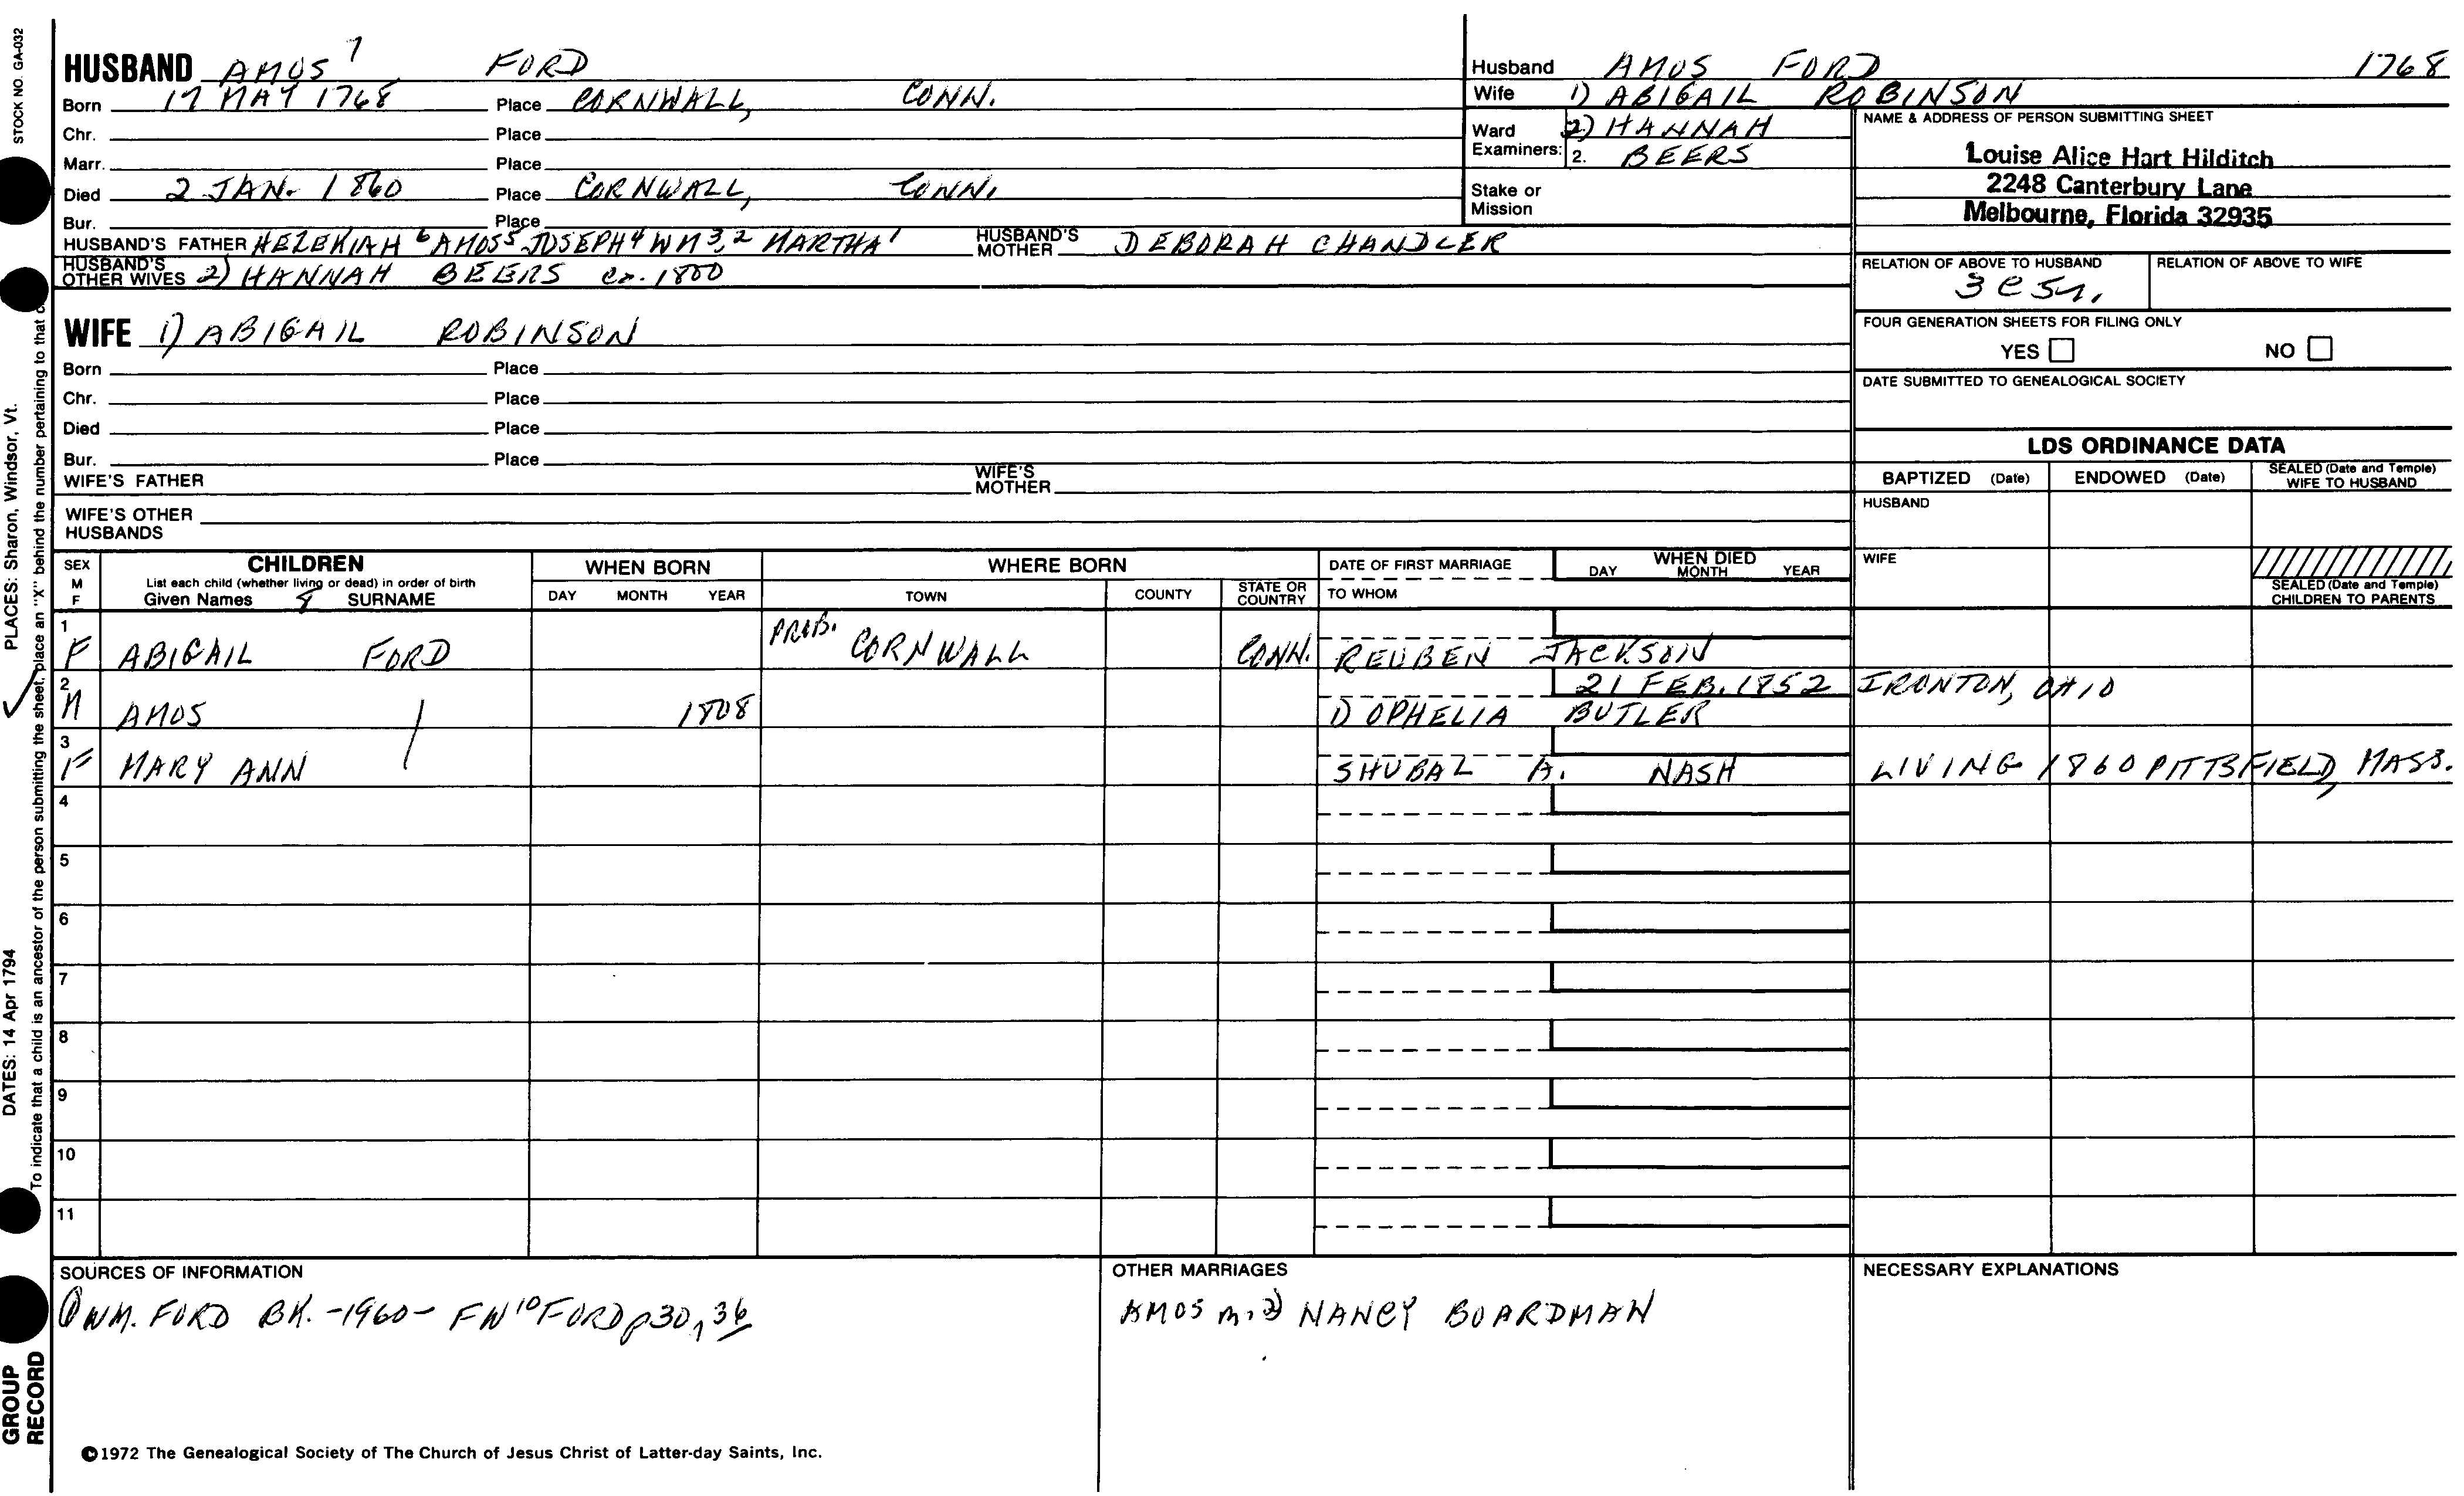 STOCK NO. GA-032
HUSBAND AMOS 7 FORD
Born 17 MAY 1768 Place CORNWALL, CONN.
Chr. Place
Marr. Place
Died 2 JAN. 1860 Place CORNWALL, CONN.
Bur. Place
HUSBAND'S FATHER HEZEKIAH 6 AMOS 5 JOSEPH 4 WM 3,2 MARTHA 1 HUSBAND'S MOTHER DEBORAH CHANDLER
HUSBAND'S OTHER WIVES 2) HANNAH BEERS ca. 1800
WIFE 1) ABIGAIL ROBINSON
Born Place
Chr. Place
Died Place
Bur. Place
WIFE'S FATHER WIFE'S MOTHER
WIFE'S OTHER HUSBANDS
Husband AMOS FORD 1768
Wife 1) ABIGAIL ROBINSON
Ward Examiners: 2) HANNAH
2. BEERS
Stake or Mission
NAME & ADDRESS OF PERSON SUBMITTING SHEET
Louise Alice Hart Hilditch
2248 Canterbury Lane
Melbourne, Florida 32935
RELATION OF ABOVE TO HUSBAND RELATION OF ABOVE TO WIFE
3 C 5
FOUR GENERATION SHEETS FOR FILING ONLY
YES NO
DATE SUBMITTED TO GENEALOGICAL SOCIETY
LDS ORDINANCE DATA
BAPTIZED (Date) ENDOWED (Date) SEALED (Date and Temple) WIFE TO HUSBAND
HUSBAND
WIFE
SEALED (Date and Temple) CHILDREN TO PARENTS
SEX M F
CHILDREN
List each child (whether living or dead) in order of birth
Given Names 8 SURNAME
WHEN BORN
DAY MONTH YEAR
WHERE BORN
TOWN COUNTY STATE OR COUNTRY
DATE OF FIRST MARRIAGE
TO WHOM
WHEN DIED
DAY MONTH YEAR
1 F ABIGAIL FORD PROB. CORNWALL CONN. REUBEN JACKSON
2 M AMOS 1808 21 FEB. 1852 IRONTON, OHIO
1) OPHELIA BUTLER
3 F MARY ANN SHUBAL A. NASH LIVING 1860 PITTSFIELD, MASS.
4
5
6
7
8
9
10
11
SOURCES OF INFORMATION
① WM. FORD BK. -1960- FW 10 FORD p30, 36
OTHER MARRIAGES
AMOS m. 2) NANCY BOARDMAN
NECESSARY EXPLANATIONS
©1972 The Genealogical Society of The Church of Jesus Christ of Latter-day Saints, Inc.
PLACES: Sharon, Windsor, Vt.
DATES: 14 Apr 1794
To indicate that a child is an ancestor of the person submitting the sheet, place an "X" behind the number pertaining to that
GROUP
RECORD